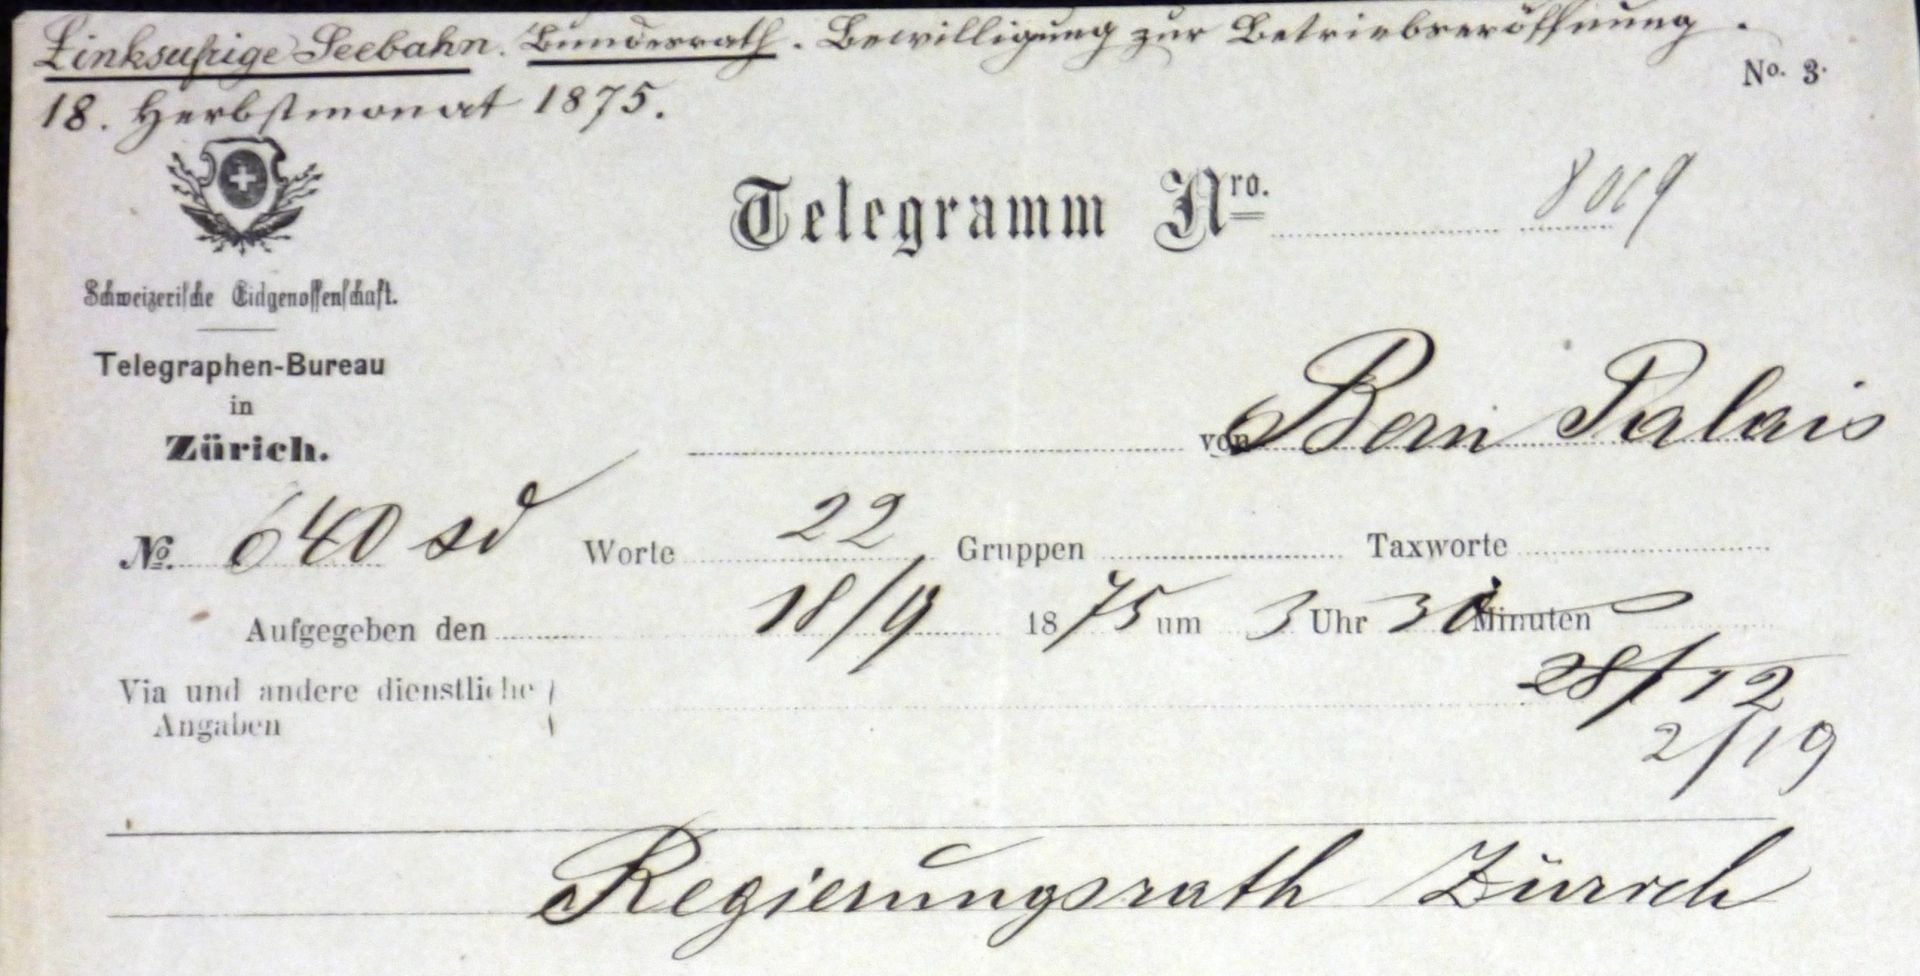 Linksufrige Seebahn. Bundesrath. Bewilligung zur Betriebseröffnung.
No. 3.
18. Herbstmonat 1875.
Telegramm Nro.
Schweizerische Eidgenossenschaft.
Telegraphen-Bureau
in
Zürich.
von Bern Palais
No. 640 sd Worte 22 Gruppen Taxworte
Aufgegeben den 18/9 1875 um 3 Uhr 30 Minuten
28/12
Via und andere dienstliche
Angaben
2/19
Regierungsrath Zürich